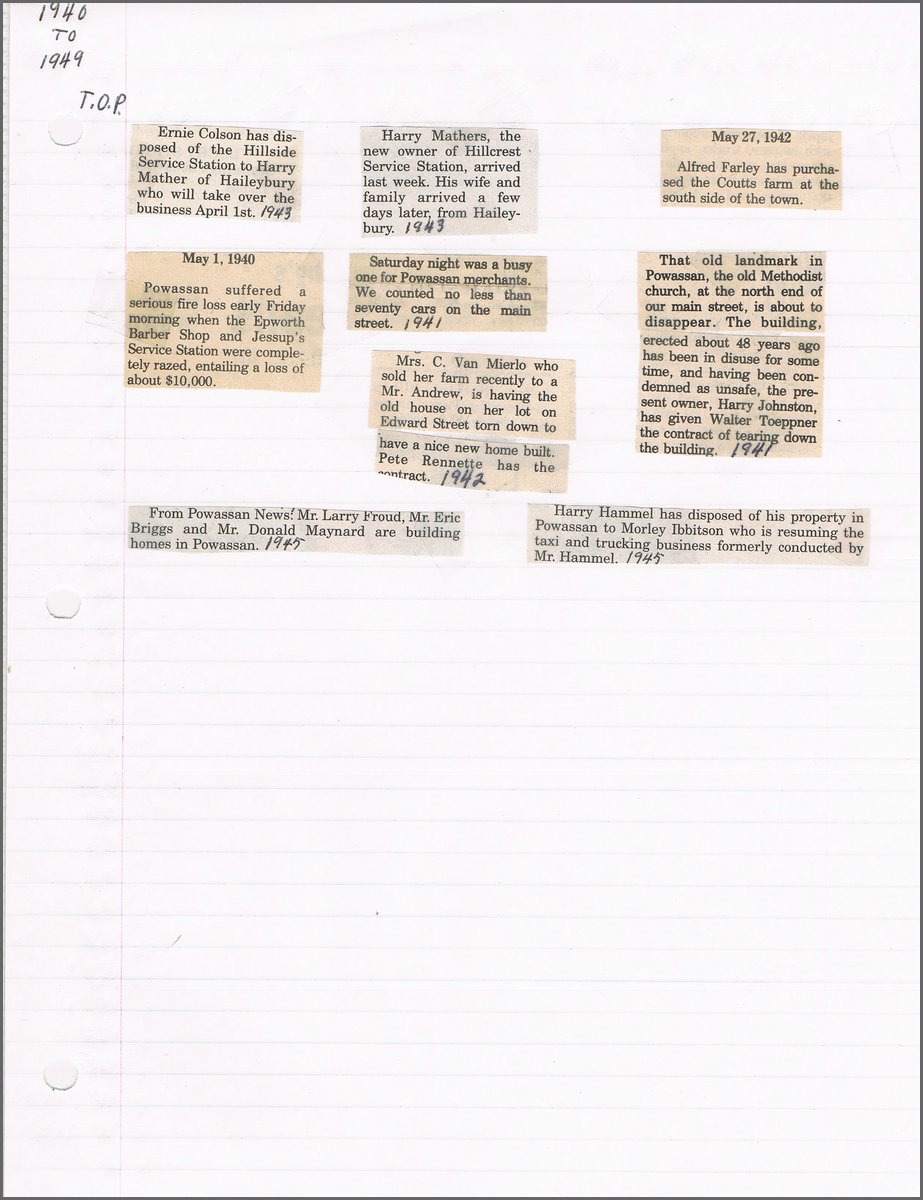 1940
TO
1949
T.O.P.
Ernie Colson has dis-
posed of the Hillside
Service Station to Harry
Mather of Haileybury
who will take over the
business April 1st. 1943
Harry Mathers, the
new owner of Hillcrest
Service Station, arrived
last week. His wife and
family arrived a few
days later, from Hailey-
bury. 1943
May 27, 1942
Alfred Farley has purcha-
sed the Coutts farm at the
south side of the town.
May 1, 1940
Powassan suffered a
serious fire loss early Friday
morning when the Epworth
Barber Shop and Jessup's
Service Station were comple-
tely razed, entailing a loss of
about $10,000.
Saturday night was a busy
one for Powassan merchants.
We counted no less than
seventy cars on the main
street. 1941
Mrs. C. Van Mierlo who
sold her farm recently to a
Mr. Andrew, is having the
old house on her lot on
Edward Street torn down to
have a nice new home built.
Pete Rennette has the
contract. 1942
That old landmark in
Powassan, the old Methodist
church, at the north end of
our main street, is about to
disappear. The building,
erected about 48 years ago
has been in disuse for some
time, and having been con-
demned as unsafe, the pre-
sent owner, Harry Johnston,
has given Walter Toeppner
the contract of tearing down
the building. 1941
From Powassan News: Mr. Larry Froud, Mr. Eric
Briggs and Mr. Donald Maynard are building
homes in Powassan. 1945
Harry Hammel has disposed of his property in
Powassan to Morley Ibbitson who is resuming the
taxi and trucking business formerly conducted by
Mr. Hammel. 1945